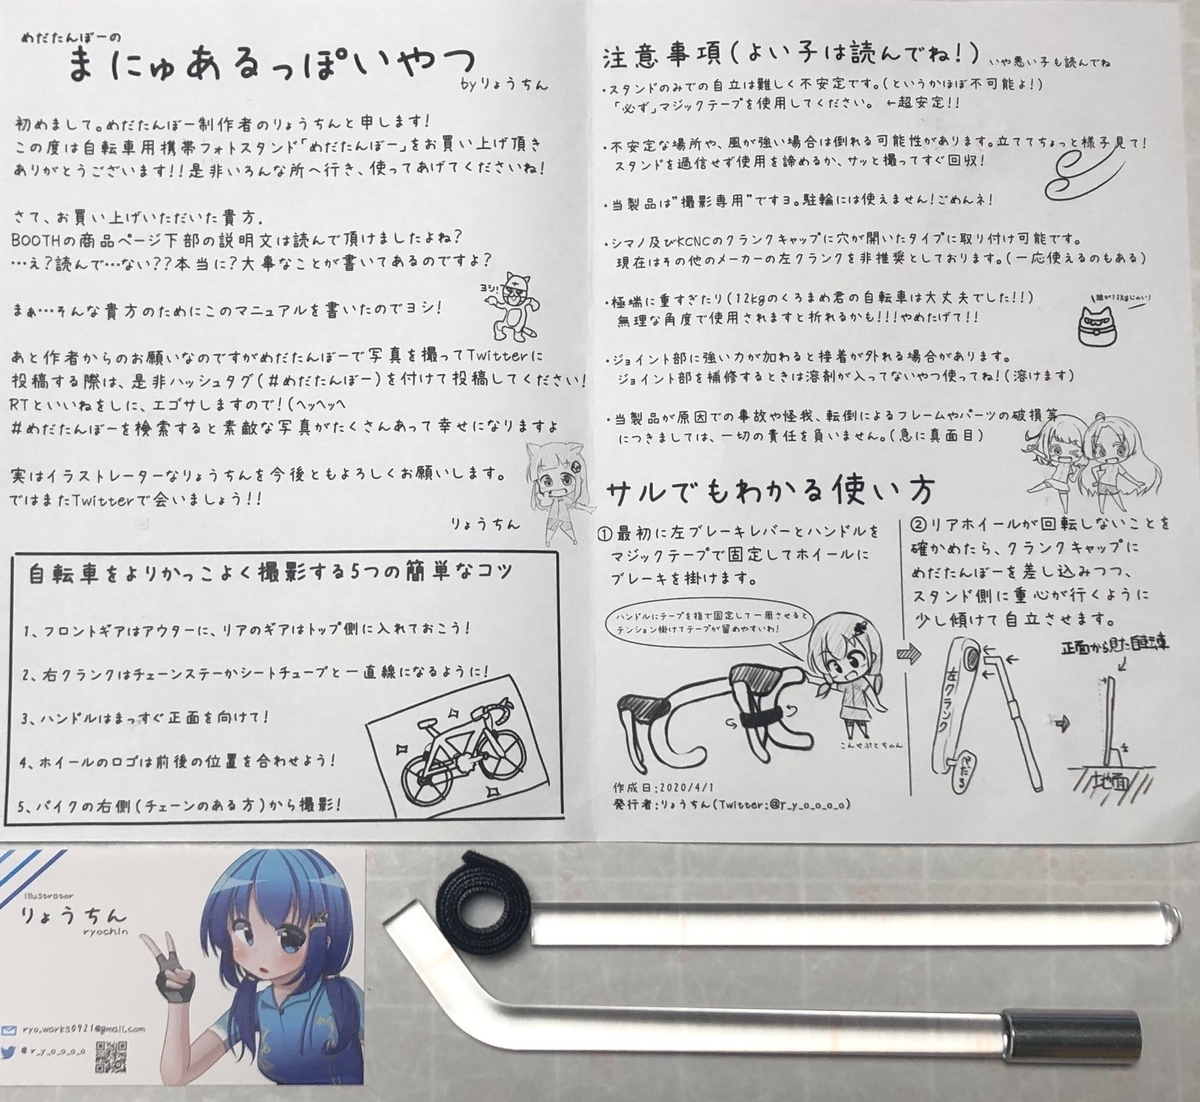 めだたんぼーの
まにゅあるっぽいやつ
byりょうちん
初めまして。めだたんぼー制作者のりょうちんと申します!
この度は自転車用携帯フォトスタンド「めだたんぼー」をお買い上げ頂き
ありがとうございます!!是非いろんな所へ行き、使ってあげてくださいね!
さて、お買い上げいただいた貴方.
BOOTHの商品ページ下部の説明文は読んで頂けましたよね?
…え?読んで…ない??本当に?大事なことが書いてあるのですよ?
ヨシ!
まぁ…そんな貴方のためにこのマニュアルを書いたのでヨシ!
あと作者からのお願いなのですがめだたんぼーで写真を撮ってTwitterに
投稿する際は、是非ハッシュタグ(#めだたんぼー)を付けて投稿してください!
RTといいねをしに、エゴサしますので!(ヘッヘッヘ
#めだたんぼーを検索すると素敵な写真がたくさんあって幸せになりますよ
実はイラストレーターなりょうちんを今後ともよろしくお願いします。
ではまたTwitterで会いましょう!!
りょうちん
自転車をよりかっこよく撮影する5つの簡単なコツ
1、フロントギアはアウターに、リアのギアはトップ側に入れておこう!
2、右クランクはチェーンステーかシートチューブと一直線になるように!
3、ハンドルはまっすぐ正面を向けて!
4、ホイールのロゴは前後の位置を合わせよう!
5、バイクの右側(チェーンのある方)から撮影!
注意事項(よい子は読んでね!)いや悪い子も読んでね
・スタンドのみでの自立は難しく不安定です。(というかほぼ不可能よ!)
「必ず」マジックテープを使用してください。 ←超安定!!
・不安定な場所や、風が強い場合は倒れる可能性があります。立ててちょっと様子見て!
スタンドを過信せず使用を諦めるか、サッと撮ってすぐ回収!
・当製品は"撮影専用"ですヨ。駐輪には使えません!ごめんネ!
・シマノ及びKCNCのクランクキャップに穴が開いたタイプに取り付け可能です。
現在はその他のメーカーの左クランクを非推奨としております。(一応使えるのもある)
・極端に重すぎたり(12kgのくろまめ君の自転車は大丈夫でした!!)
無理な角度で使用されますと折れるかも!!!やめたげて!!
誰が12kgじゃい!
・ジョイント部に強い力が加わると接着が外れる場合があります。
ジョイント部を補修するときは溶剤が入ってないやつ使ってね!(溶けます)
・当製品が原因での事故や怪我、転倒によるフレームやパーツの破損等
につきましては、一切の責任を負いません。(急に真面目)
サルでもわかる使い方
①最初に左ブレーキレバーとハンドルを
マジックテープで固定してホイールに
ブレーキを掛けます。
ハンドルにテープを指で固定して一周させると
テンション掛けてテープが留めやすいわ!
こんせぷとちゃん
作成日:2020/4/1
発行者:りょうちん(Twitter:@r_y_o_o_o_o)
②リアホイールが回転しないことを
確かめたら、クランクキャップに
めだたんぼーを差し込みつつ、
スタンド側に重心が行くように
少し傾けて自立させます。
正面から見た自転車
左クランク
ペダル
左
地面
Illustrator
りょうちん
ryochin
ryo.works0921@gmail.com
@r_y_o_o_o_o